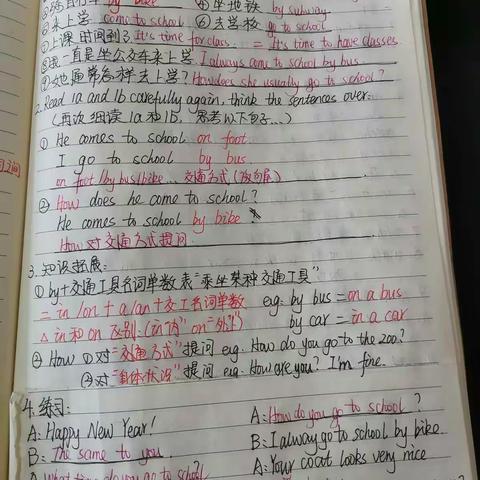 by bike ④坐地铁 by subway
⑤来上学 come to school ⑥去学校 go to school
⑦上课时间到了 It's time for class. = It's time to have classes
⑧我一直是坐公交车来上学 I always come to school by bus
⑨她通常怎样去上学? How does she usually go to school?
2. Read 1a and 1b carefully again, think the sentences over.
(再次细读1a和1b, 思考以下句子...)
① He comes to school on foot
I go to school by bus.
on foot / by bus/bike... 交通方式
② How does he come to school?
He comes to school by bike.
How 对交通方式提问.
3. 知识拓展:
① by+交通工具名词单数表"乘坐某种交通工具"
= in /on + a/an +交工名词单数 eg: by bus = on a bus
△ in 和 on 区别: (in "内" on "外") by car = in a car
② How ①对"交通方式"提问 eg. How do you go to the zoo?
②对"身体状况"提问 eg. How are you? I'm fine.
4. 练习:
A: Happy New Year! A: How do you go to school?
B: The same to you. B: I always go to school by bike.
A: Your coat looks very nice
do you go to school?